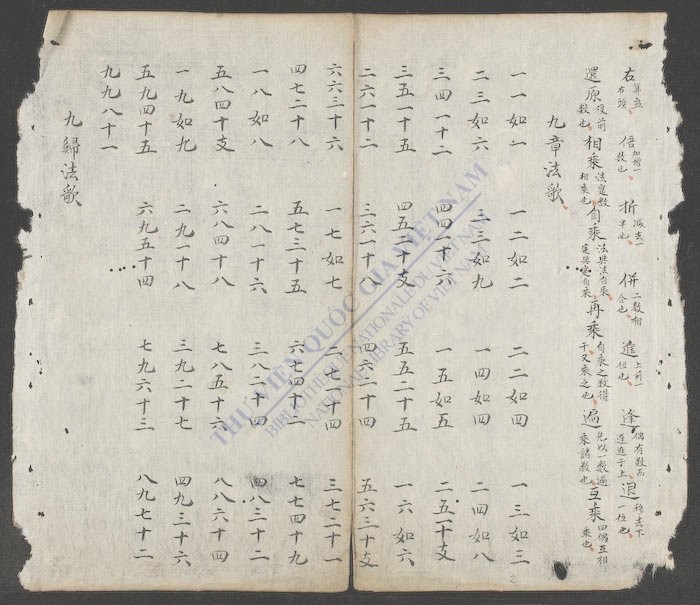 右算盘右頭 倍加增一数也 折減去一半也 併二数相合也 進上前一位也 逢偶有数而進于上 退移去下一位也
還原復前数也 相乘法寔数相乘也 自乘法與法自乘寔與寔自乘 再乘自乘之数得干又乘之也 遍先以一数遍乘諸数也 互乘四偶互相乘也
九章法歌
一一如一 一二如二 二二如四 一三如三
二三如六 三三如九 一四如四 二四如八
三四一十二 四四一十六 一五如五 二五一十支
三五一十五 四五二十支 五五二十五 一六如六
二六一十二 三六一十八 四六二十四 五六三十支
六六三十六 一七如七 二七一十四 三七二十一
四七二十八 五七三十五 六七四十二 七七四十九
一八如八 二八一十六 三八二十四 四八三十二
五八四十支 六八四十八 七八五十六 八八六十四
一九如九 二九一十八 三九二十七 四九三十六
五九四十五 六九五十四 七九六十三 八九七十二
九九八十一
九歸法歌
2
THƯ VIỆN QUỐC GIA VIỆT NAM
BIBLIOTHÈQUE NATIONALE DU VIETNAM
NATIONAL LIBRARY OF VIETNAM